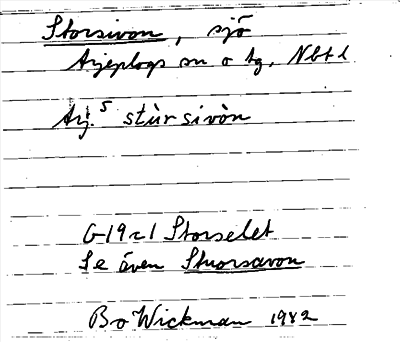 Storsivon, sjö
Arjeplogs sn o tg, Nbtl
Arj. 5 stùrsivòn
G19c1 Storselet
Se även Stuorsavon
Bo Wickman 1982